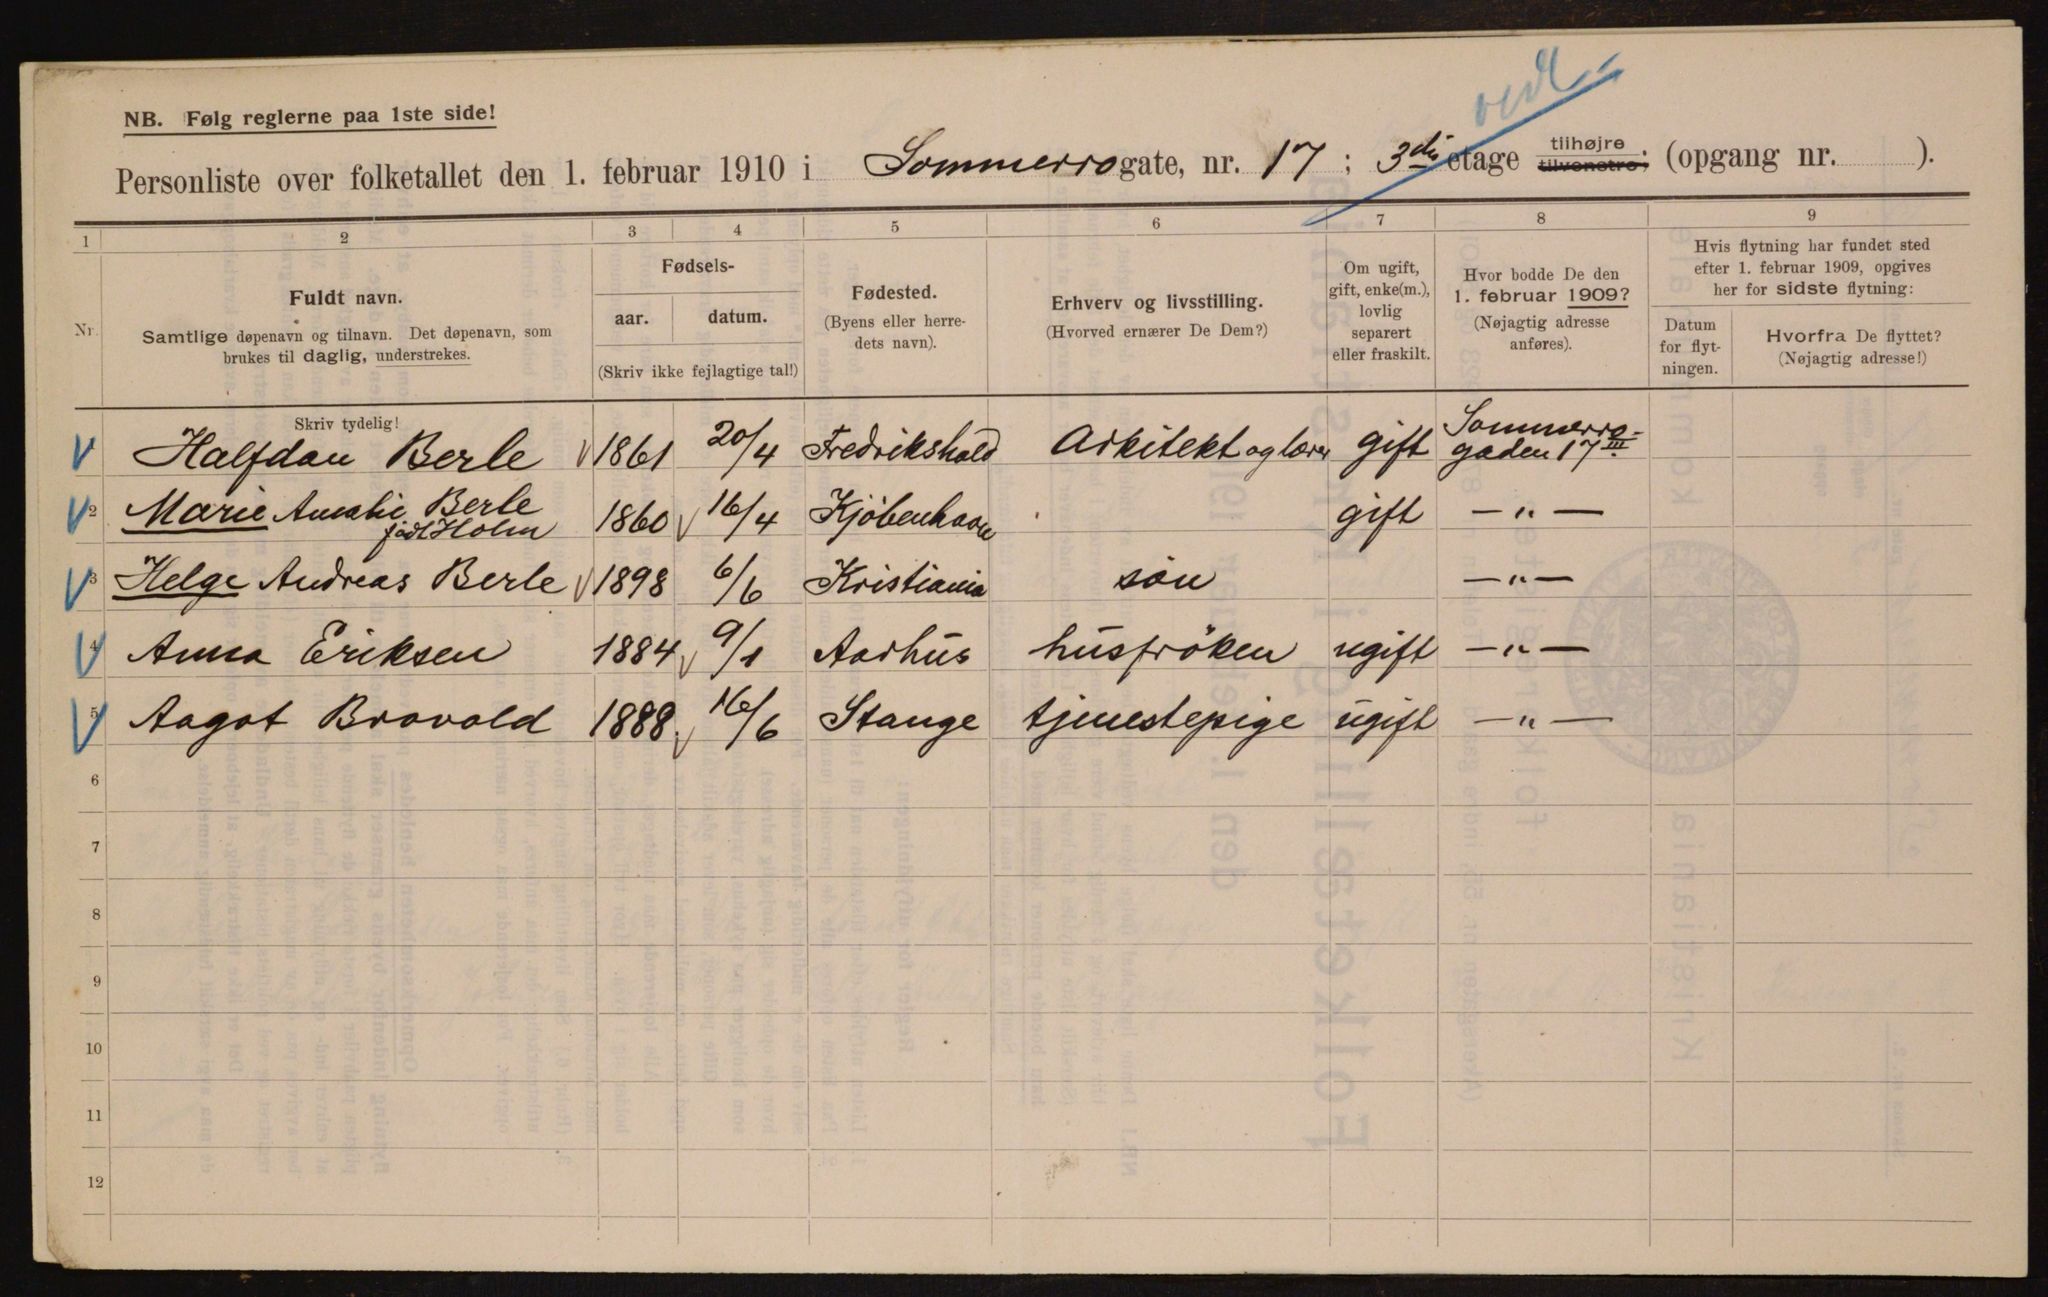 NB. Følg reglerne paa 1ste side!
vedl.
Personliste over folketallet den 1. februar 1910 i Sommerrogate, nr. 17; 3die etage tilhøjre, tilvenstre, (opgang nr. ).
1 2 3 4 5 6 7 8 9
Nr.
Fuldt navn.
Samtlige døpenavn og tilnavn. Det døpenavn, som
brukes til daglig, understrekes.
Fødsels-
aar. datum.
(Skriv ikke fejlagtige tal!)
Fødested.
(Byens eller herre-
dets navn).
Erhverv og livsstilling.
(Hvorved ernærer De Dem?)
Om ugift,
gift, enke(m.),
lovlig
separert
eller fraskilt.
Hvor bodde De den
1. februar 1909?
(Nøjagtig adresse
anføres).
Hvis flytning har fundet sted
efter 1. februar 1909, opgives
her for sidste flytning:
Datum
for flyt-
ningen.
Hvorfra De flyttet?
(Nøjagtig adresse!)
Skriv tydelig!
Halfdan Berle 1861 20/4 Fredrikshald Arkitekt og lærer gift Sommerro-
gaden 17 III.
2 Marie Amalie Berle
født Holm 1860 16/4 Kjøbenhavn gift — „ —
3 Helge Andreas Berle 1898 6/6 Kristiania søn — „ —
4 Anna Eriksen 1884 9/1 Aarhus husfröken ugift — „ —
5 Aagot Brovold 1888. 16/6 Stange tjenestepige ugift — „ —
6
7
8
9
10
11
12